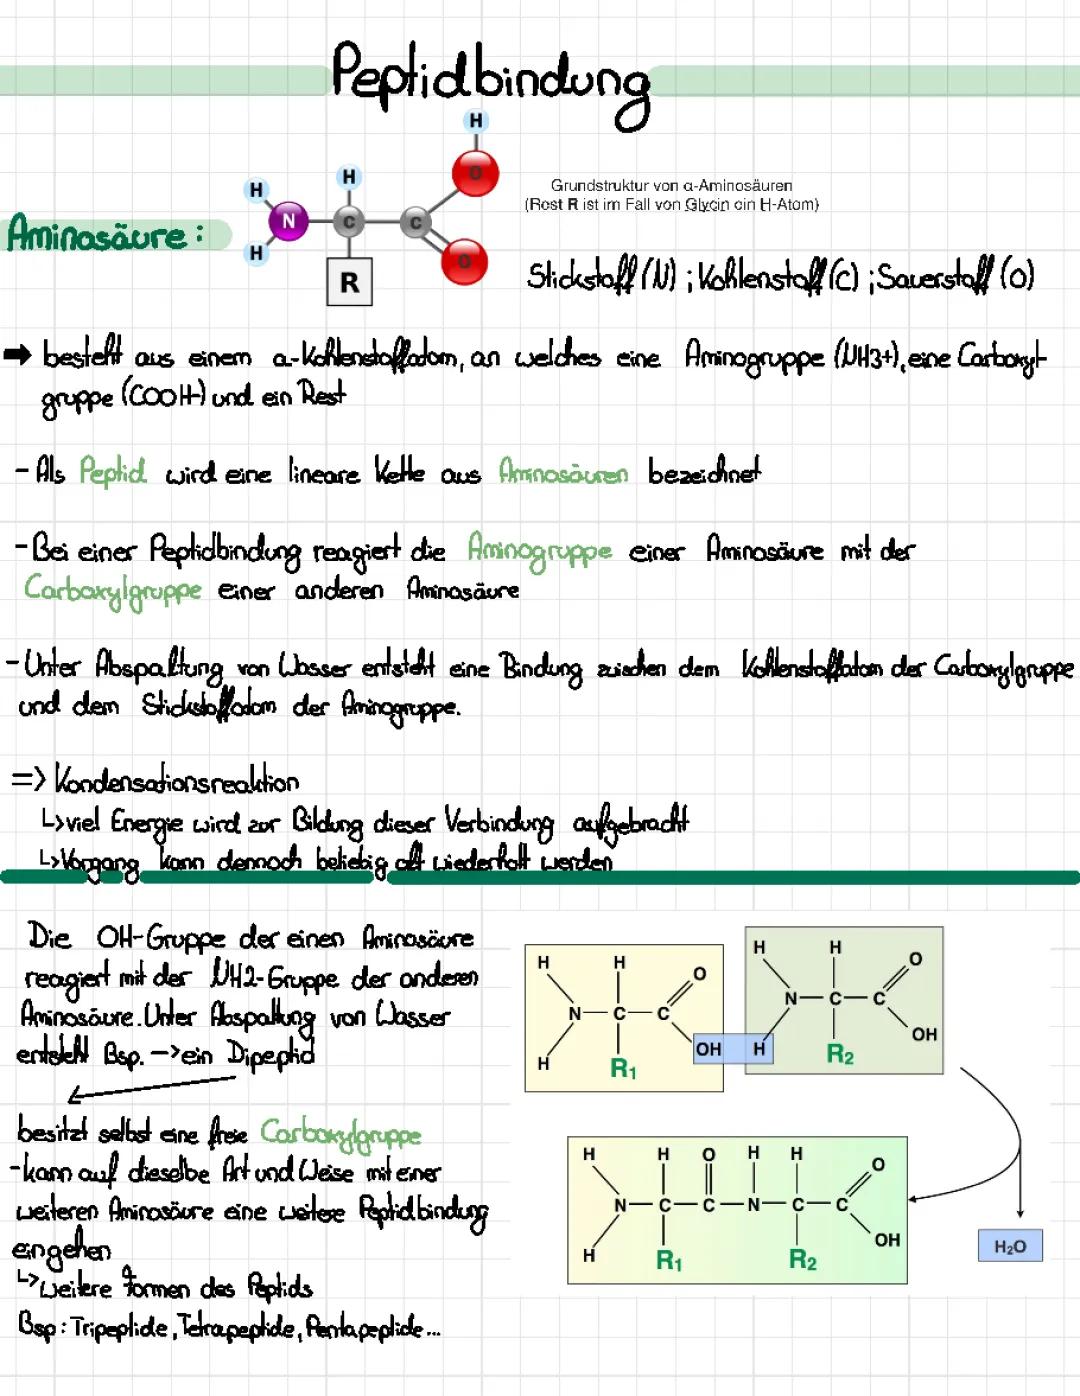 Peptidbindung
H
H
H
O
N
C
C
H
O
R
Grundstruktur von α-Aminosäuren
(Rest R ist im Fall von Glycin ein H-Atom)
Aminosäure:
Stickstoff (N) ; Kohlenstoff (C) ; Sauerstoff (O)
➡ besteht aus einem a-Kohlenstoffatom, an welches eine Aminogruppe (NH3+), eine Carboxyl-
gruppe (COOH-) und ein Rest
- Als Peptid wird eine lineare Kette aus Aminosäuren bezeichnet
- Bei einer Peptidbindung reagiert die Aminogruppe einer Aminosäure mit der
Carboxylgruppe einer anderen Aminosäure
- Unter Abspaltung von Wasser entsteht eine Bindung zwischen dem Kohlenstoffatom der Carboxylgruppe
und dem Stickstoffatom der Aminogruppe.
=> Kondensationsreaktion
↳ viel Energie wird zur Bildung dieser Verbindung aufgebracht
↳ Vorgang kann dennoch beliebig oft wiederholt werden
Die OH-Gruppe der einen Aminosäure
reagiert mit der NH2-Gruppe der anderen
Aminosäure. Unter Abspaltung von Wasser
entsteht Bsp. -> ein Dipeptid
besitzt selbst eine freie Carboxylgruppe
- kann auf dieselbe Art und Weise mit einer
weiteren Aminosäure eine weitere Peptidbindung
eingehen
↳ weitere Formen des Peptids
Bsp: Tripeptide, Tetrapeptide, Pentapeptide...
H H O
N C C
H R1 OH
H H O
N C C
H R2 OH
H H O H H O
N C C N C C
H R1 R2 OH
H2O